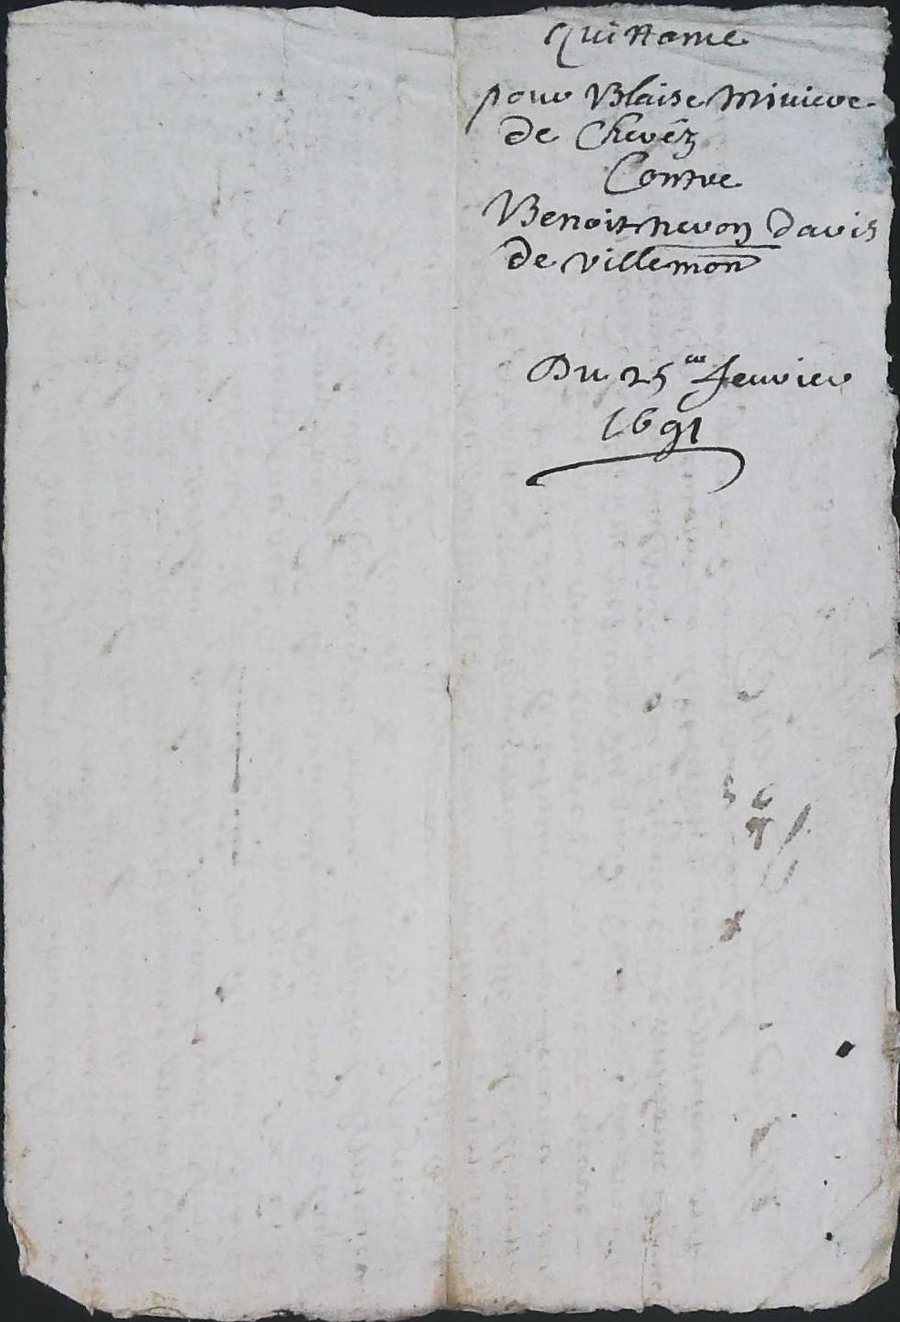 Quittance
pour Blaise Miviere
de Chevêz
Contre
Benoit nevon davis
de villemon
Du 25me Jenvier
1691